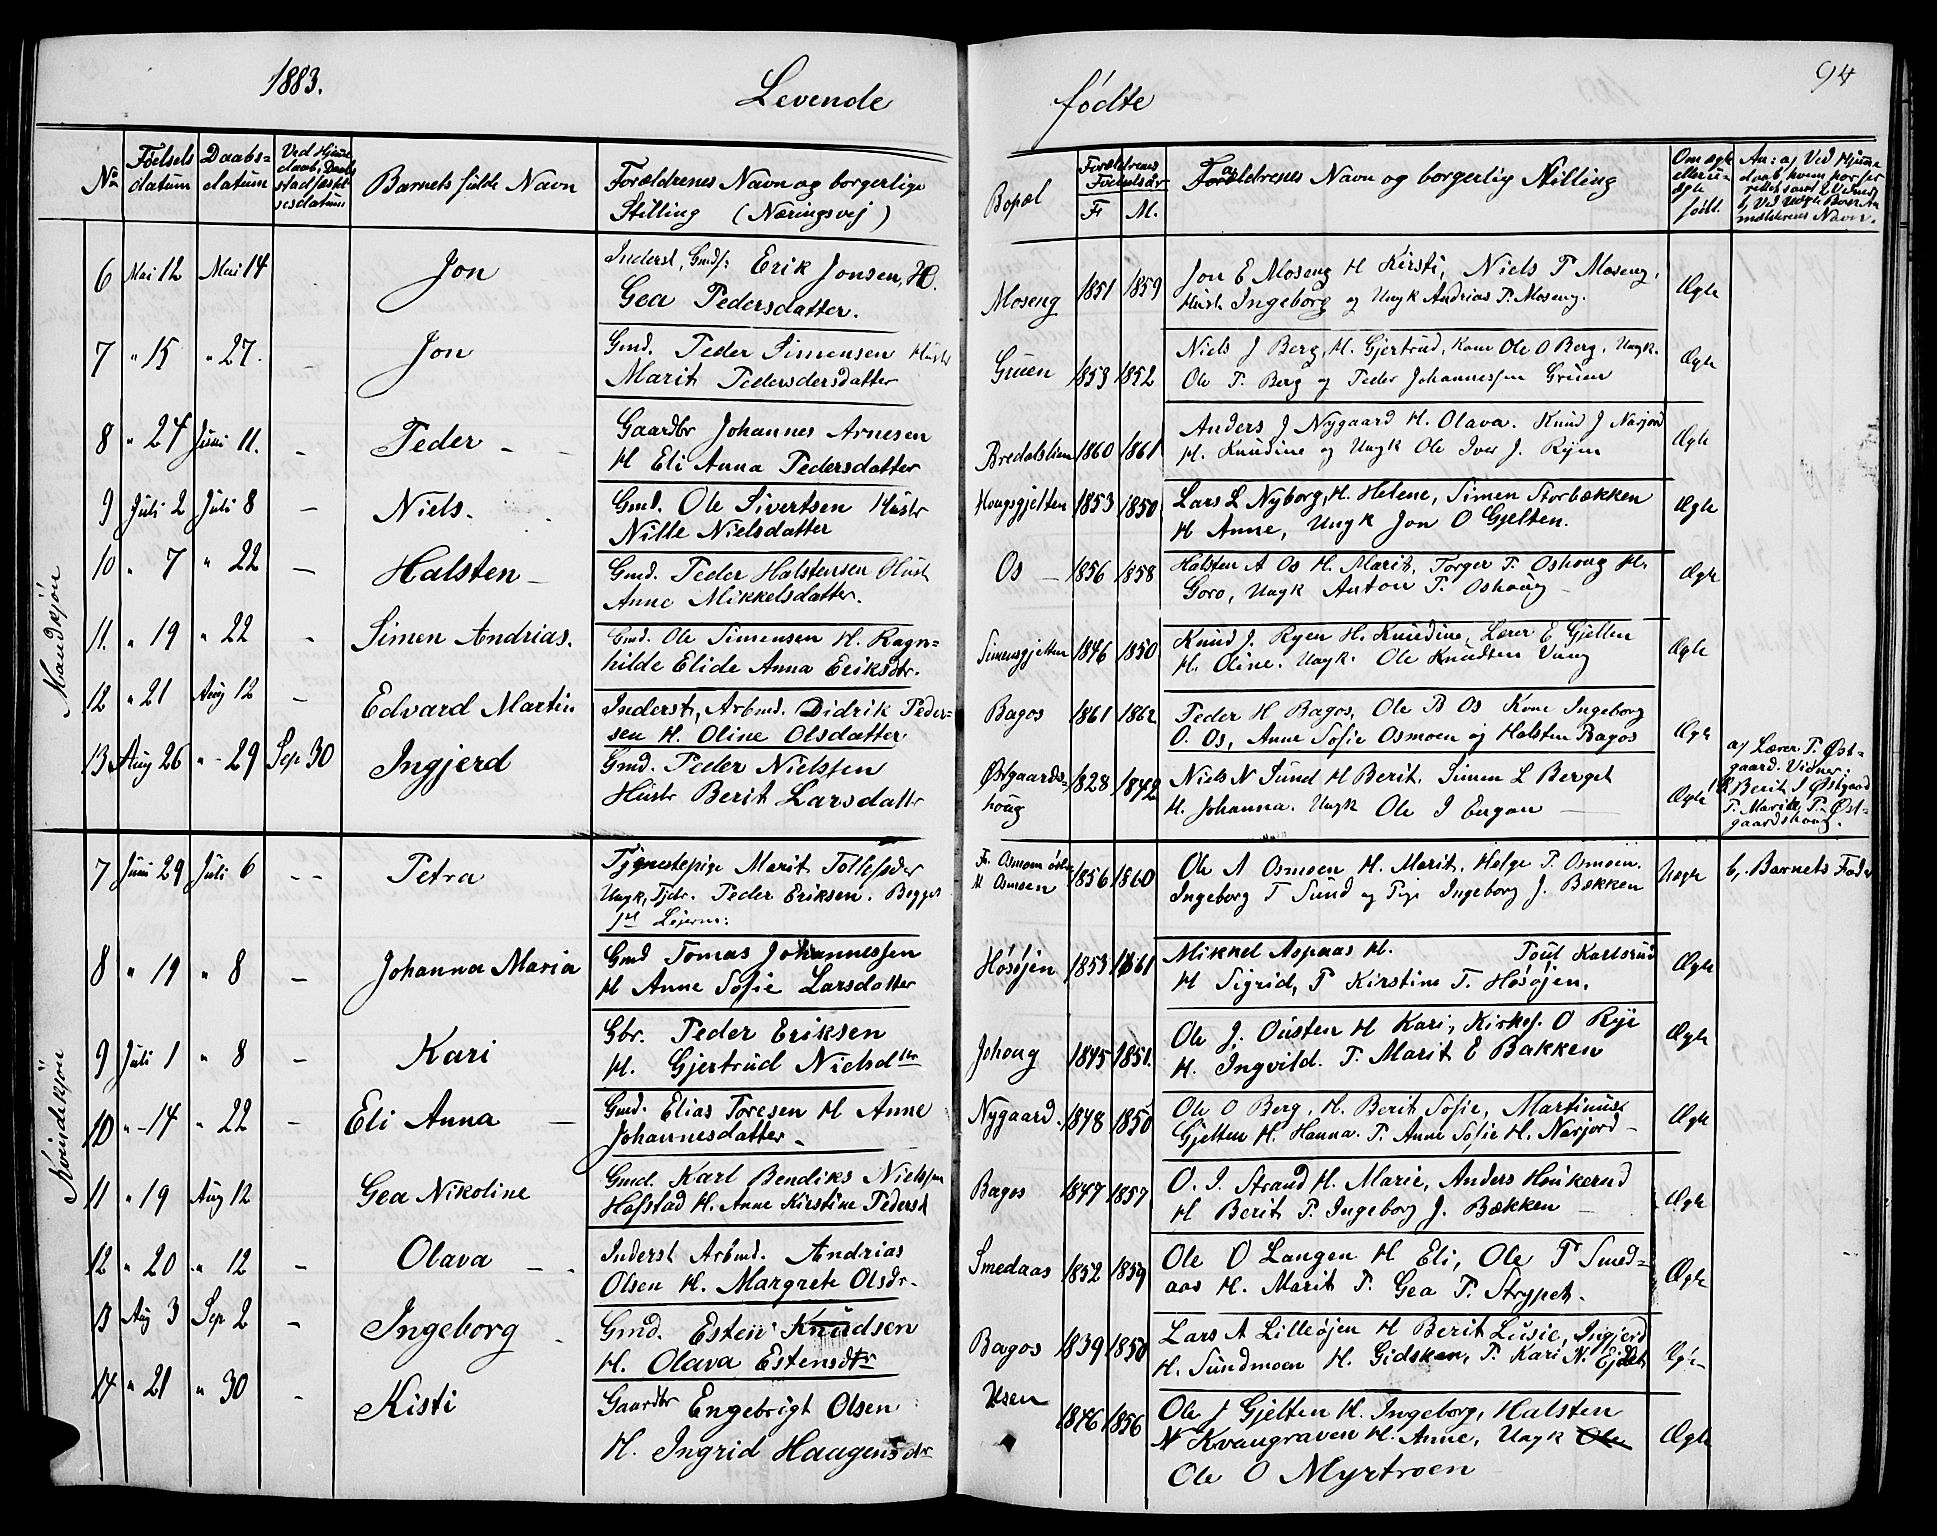 1883.
Levende
No
Födsels datum
Daabs= datum
Ved Hjemme daab, Daabs stadfæstel sesdatum
Barnets fulde Navn
Forældrenes Navn og borgerlige
Stilling (Næringsvej)
Mandkjön
6 Mai 12 Mai 14 Jon
Inderst, Gmds: Erik Jonsen, H.
Gea Pedersdatter.
7 " 15 " 27. - Jon
Gmd. Peder Simensen Hustr
Marit Pedersdersdatter
8 " 24 Juni 11. - Peder -
Gaardbr Johannes Arnesen
H Eli Anna Pedersdatter
9 Juli 2 Juli 8 - Niels.
Gmd. Ole Sivertsen Hustr
Nille Nielsdatter
10 " 7 " 22 - Halsten -
Gmd. Peder Halstensen Hust
Anne Mikkelsdatter.
11. " 19 " 22 - Simen Andrias.
Gmd. Ole Simensen H. Ragn=
hilde Elide Anna Eriksdtr.
12 " 21 Aug 12 - Edvard Martin
Inderst, Arbmd. Didrik Peder=
sen H. Oline Olsdatter
13 Aug 26 " 29 Sep 30 Ingjerd
Gmd. Peder Nielssen
Hustr Berit Larsdattr
Kvindekjön
7 Juni 29 Juli 6 - - Petra
Tjenestepige Marit Tollefsder
Ungk, Tjdr. Peder Eriksen. Begges
1st Leierm:
8 " 19 " 8 - Johanna Maria
Gmd Tomas Johannessen
H Anne Sofie Larsdatter
9 Juli 1 " 8 - Kari
Gbr. Peder Eriksen
H. Gjertrud Nielsdtr
10 " 14 " 22 - Eli Anna -
Gmd. Elias Toresen H Anne
Johannesdatter -
11 " 19 Aug 12 Gea Nikoline
Gmd. Karl Bendiks Nielssen
Hofstad H. Anne Kirstine Pedersd
12 " 20 " 12 - Olava - -
Inderst Arbmd. Andrias
Olsen H. Margrete Olsdr.
13 Aug 3 Sep 2 - Ingeborg -
Gmd. Esten Knudsen
H. Olava Estensdtr
14 " 21 " 30 - Kisti
Gaardbr Engebrigt Olsen
H. Ingrid Haagensdr
födte
94
Bopæl
Forældrenes Födselsår
F. M.
Forældrenes Navn og borgerlig Stilling
Om ægte eller u= ægte födt.
An: a, Ved Hjemme daab hvem har for rettet samt 2 Vidner
b, Ved Uægte Börn An mælderens Navn.
Moseng 1851 1859
Jon E Moseng H Kirsti, Niels P Moseng,
Hustr Ingeborg og Ungk Andrias P. Moseng.
Ægte
Gruen 1853 1852
Niels J Berg, H. Gjertrud, Kone Ole O Berg, Ungk.
Ole P. Berg og Peder Johannessen Gruen
Ægte
Bredalslien 1860 1861
Anders J Nygaard H. Olava. Knud J Narjord
H. Knudine og Ungk Ole Iver J. Ryen
Ægte
Hougsgjelten 1853 1850
Lars L Nyborg, H. Helene, Simen Storbækken
H Anne, Ungk Jon O Gjelten.
Ægte
Os - 1856 1858
Halsten A Os H. Marit, Torger P. Oshoug H.
Goro, Ungk Anton P. Oshoug
Ægte
Simensgjelten 1846 1850
Knud J. Ryen H. Knudine, Lærer E Gjelten
H. Oline. Ungk. Ole Knudsen Vang
Ægte
Bagos 1861 1862
Peder H Bagos, Ole B Os Kone Ingeborg
O. Os, Anne Sofie Osmoen og Halsten Bagos
Ægte
Østgaards=
houg
1828 1842
Niels N Sund H Berit. Simen L Berget
H. Johanna. Ungk Ole I Engan -
Ægte
a, Lærer P. Øst=
gaard. Vidner:
Berit J Østgaard
P. Marit P. Øst=
gaardshoug.
F. Osmoen
M Osmoen 1856 1860
Ole A Osmoen H. Marit. Helge P. Osmoen.
Ingeborg T Sund og Pige Ingeborg J. Bækken
Uægte
b, Barnets Fader
Høsøjen 1853 1861
Mikkel Aspaas H. Poul Karlsrud
H Sigrid, P Kirstine T. Høsøjen.
Ægte
Johoug 1845 1851.
Ole J. Ousten H Kari, Kirkes. O Rye
H. Ingvild. P. Marit E Bakken
Ægte
Nygaard. 1848 1850
Ole O Berg, H. Berit Sofie, Martinus
Gjelten H. Hanna. P. Anne Sofie H. Narjord -
Ægte
Bagos 1847 1857
O. J. Strand H. Marie, Anders Houkerud
H Berit P. Ingeborg J. Bækken -
Ægte
Smedaas 1852 1859
Ole O Langen H Eli, Ole P Smed=
aas H. Marit P. Gea P. Strypet.
Ægte
Bagos 1839 1850
Lars A Lilleøjen H Berit Lusie, Ingjerd
H. Sundmoen H. Gidsken, P. Kari N. Ejdet
Ægte
Usen 1846 1856
Ole J Gjelten H. Ingeborg, Halsten
N Kvangraven H. Anne, Ungk Ole
Ole O Myrtroen
Ægte